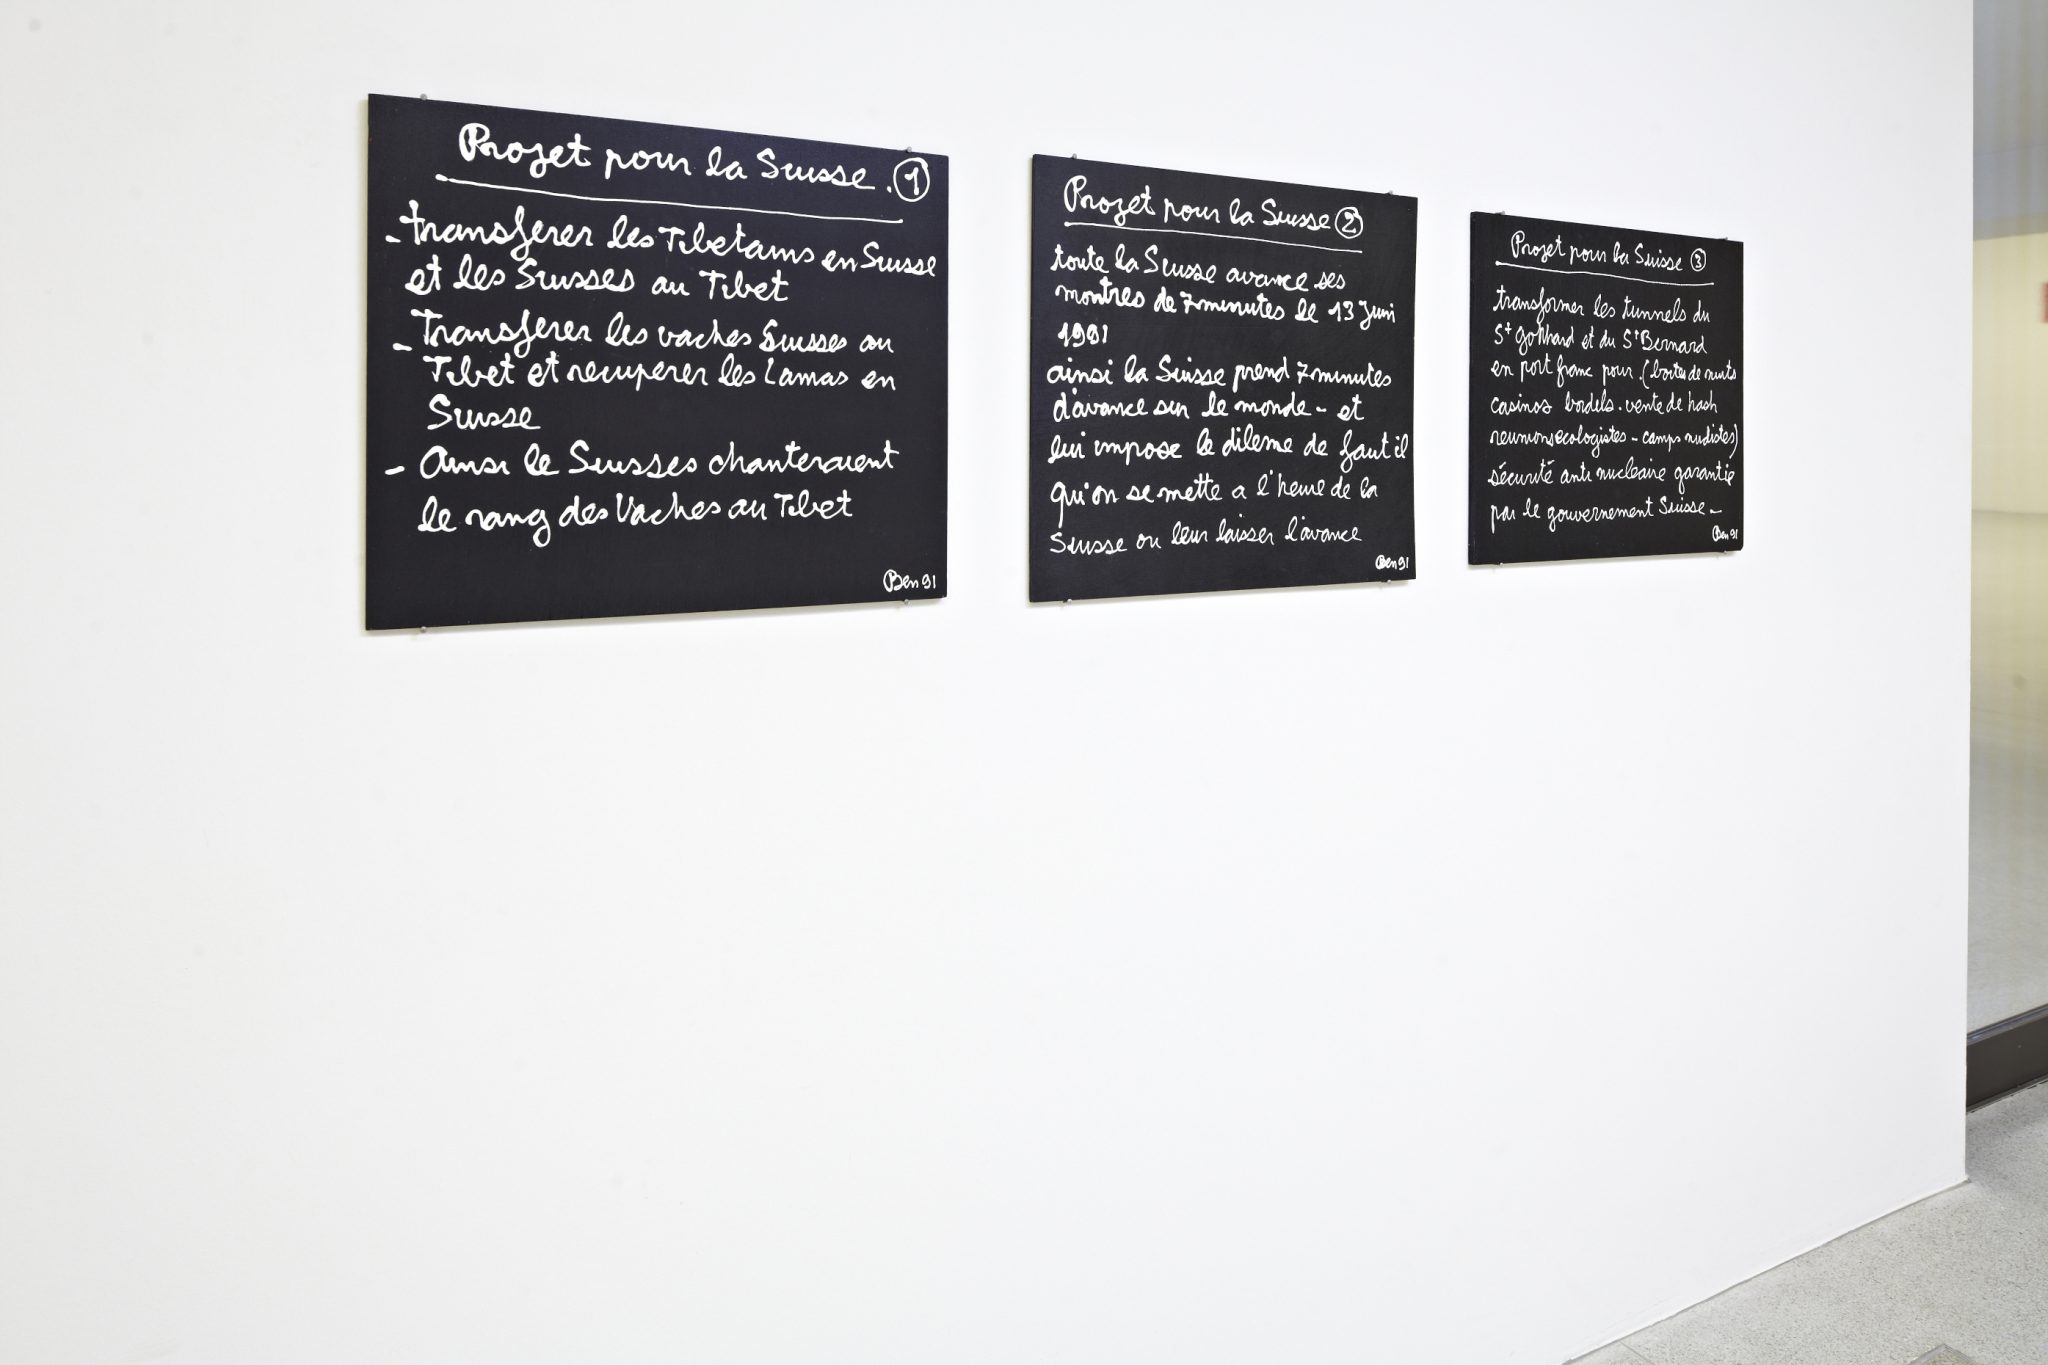 Projet pour la Suisse. 1
- transferer les Tibetains en Suisse
et les Suisses au Tibet
- Transferer les vaches Suisses au
Tibet et recuperer les Lamas en
Suisse
- Ainsi le Suisses chanteraient
le rang des Vaches au Tibet
Ben 91
Projet pour la Suisse 2
toute la Suisse avance ses
montres de 7 minutes le 13 Juin
1991
ainsi la Suisse prend 7 minutes
d'avance sur le monde - et
lui impose le dileme de faut il
qu'on se mette a l'heure de la
Suisse ou leur laisser l'avance
Ben 91
Projet pour la Suisse 3
transformer les tunnels du
St Gotthard et du St Bernard
en port franc pour. (boites de nuits
casinos bordels. vente de hash
reunions ecologistes - camps nudistes)
sécurité anti nucleaire garantie
par le gouvernement Suisse -
Ben 91